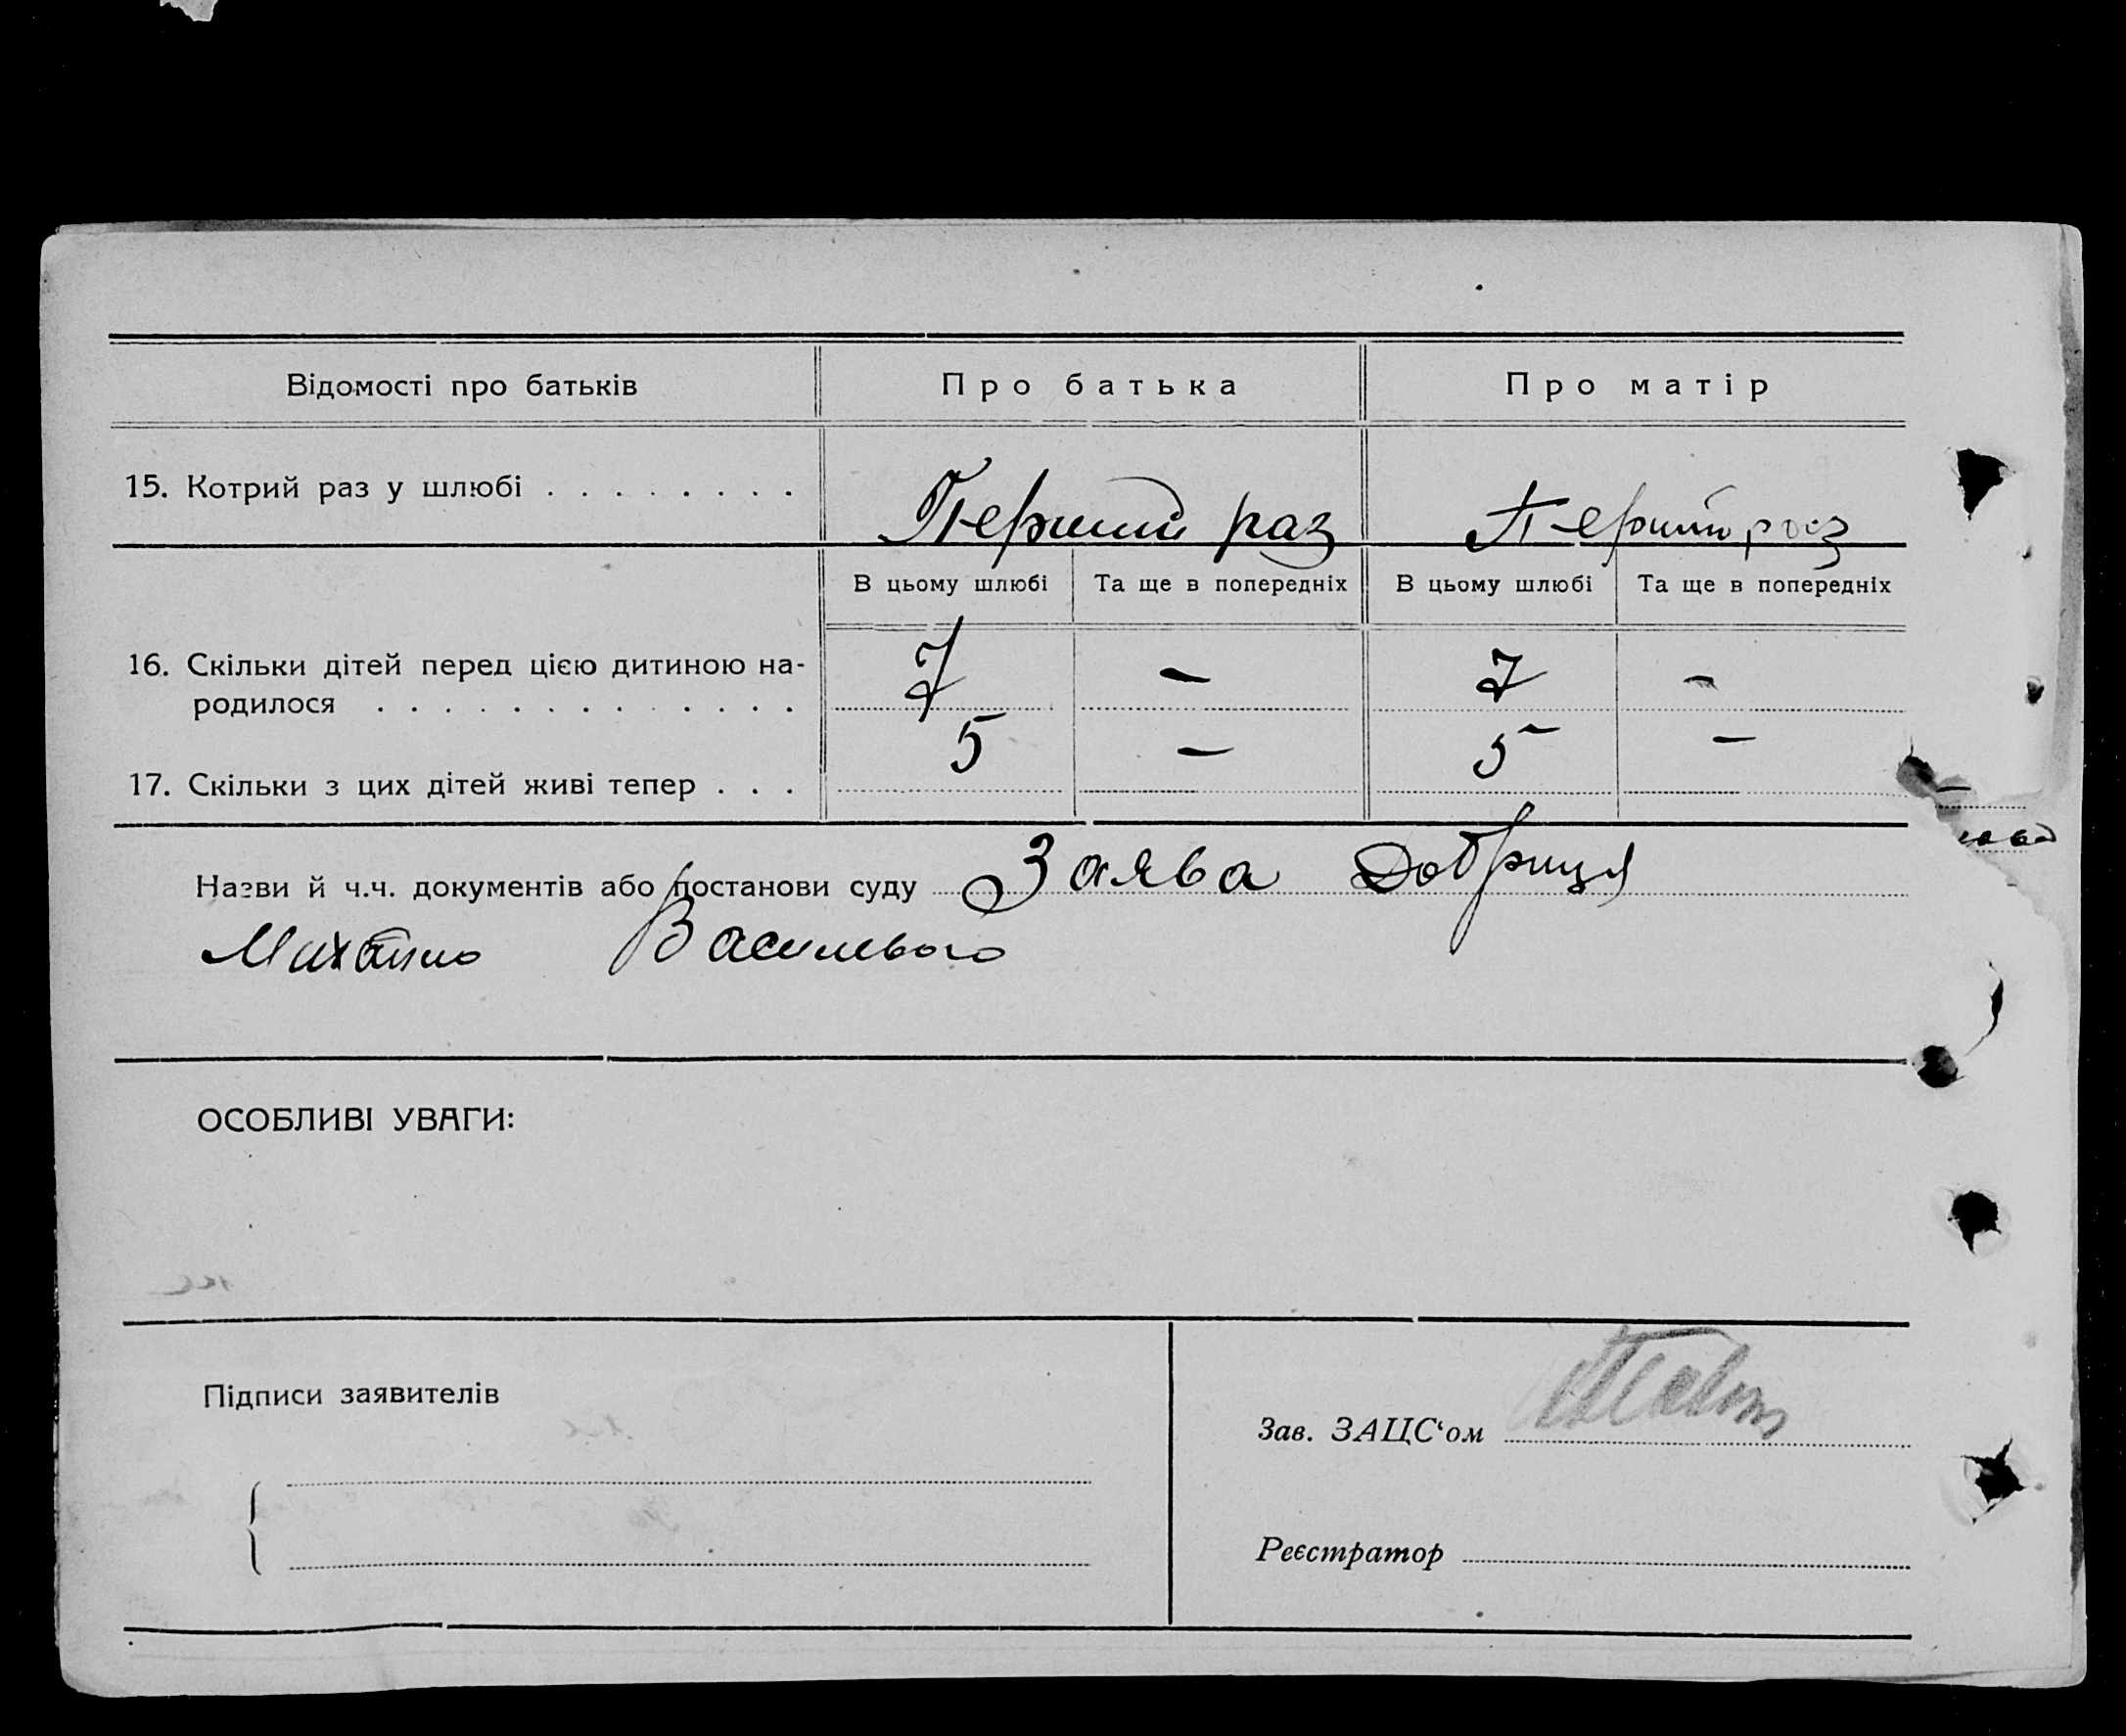 Відомості про батьків Про батька Про матір
15. Котрий раз у шлюбі . . . . . . . . Перший раз Перший раз
В цьому шлюбі Та ще в попередніх В цьому шлюбі Та ще в попередніх
16. Скільки дітей перед цією дитиною на-
родилося . . . . . . . . . . . . . 7 — 7 —
17. Скільки з цих дітей живі тепер . . . 5 — 5 —
Назви й ч.ч. документів або постанови суду Заява Добриця
Михайло Василевого
ОСОБЛИВІ УВАГИ:
Підписи заявителів
Зав. ЗАЦС‘ом
Реєстратор